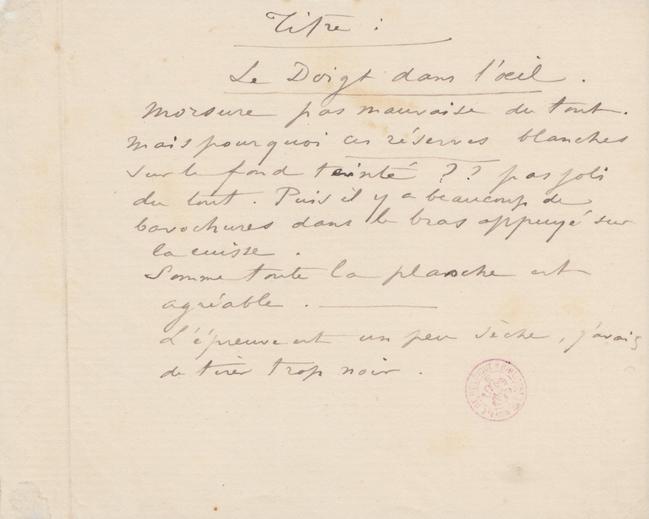 Titre :
Le Doigt dans l'œil .
Morsure pas mauvaise du tout .
Mais pourquoi ces réserves blanches
sur le fond teinté ?? pas joli
du tout . Puis il y a beaucoup de
bavochures dans le bras appuyé sur
la cuisse .
Somme toute la planche est
agréable .
L'épreuve est un peu sèche , j'avais
de tirer trop noir .